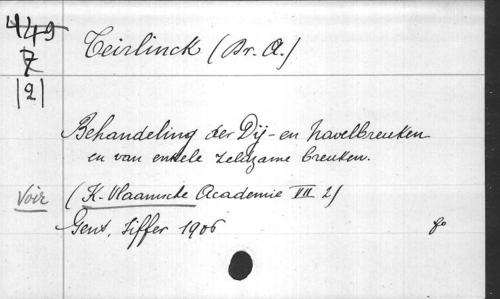 449
Z
|2|
Teirlinck (Dr. A.)
Behandeling der Dij- en Navelbreuken
en van enkele zeldzame breuken.
Voir (K. Vlaamsche Academie VII 2)
Gent, Siffer 1906 fo